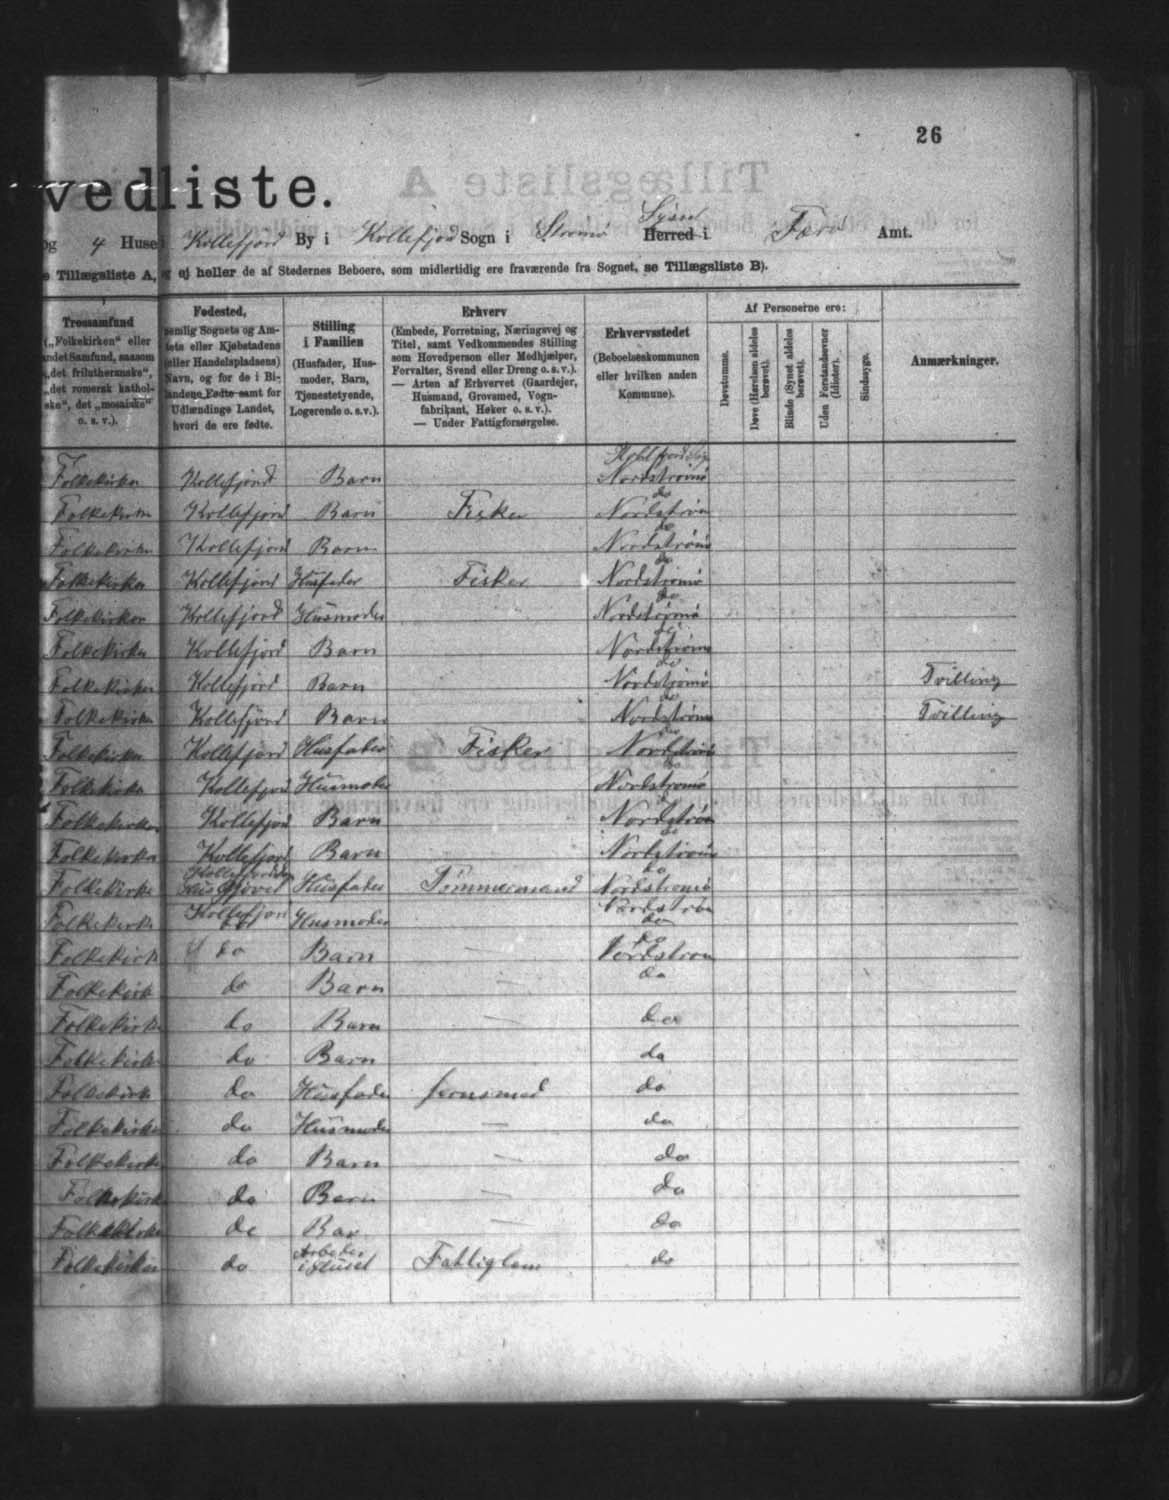 26
vedliste.
og 4 Huse i Kollefjord By i Kollefjord Sogn i Strømø Syssel Herred i Færø Amt.
e Tillægsliste A, og ej heller de af Stedernes Beboere, som midlertidig ere fraværende fra Sognet, se Tillægsliste B).
Trossamfund („Folkekirken“ eller andet Samfund, saasom „det frilutheranske“, „det romersk katholske“, det „mosaiske“ o. s. v.).
Fødested, nemlig Sognets og Amtets eller Kjøbstadens (eller Handelspladsens) Navn, og for de i Bilandene Fødte samt for Udlændinge Landet, hvori de ere fødte.
Stilling i Familien (Husfader, Husmoder, Barn, Tjenestetyende, Logerende o. s. v.).
Erhverv (Embede, Forretning, Næringsvej og Titel, samt Vedkommendes Stilling som Hovedperson eller Medhjælper, Forvalter, Svend eller Dreng o. s. v.). — Arten af Erhvervet (Gaardejer, Husmand, Grovsmed, Vognfabrikant, Høker o. s. v.). — Under Fattigforsørgelse.
Erhvervsstedet (Beboelseskommunen eller hvilken anden Kommune).
Af Personerne ere:
Døvstumme.
Døve (Hørelsen aldeles berøvet).
Blinde (Synet aldeles berøvet).
Uden Forstandsevner (Idioter).
Sindssyge.
Anmærkninger.
Folkekirken Kollefjord Barn Nordstrømø
Folkekirken Kollefjord Barn Fisker do Nordstrøm
Folkekirken Kollefjord Barn do Nordstrømø
Folkekirken Kollefjord Husfader Fisker do Nordstrømø
Folkekirken Kollefjord Husmoder do Nordstrømø
Folkekirken Kollefjord Barn do Nordstrømø
Folkekirken Kollefjord Barn do Nordstrømø Tvilling
Folkekirken Kollefjord Barn do Nordstrømø Tvilling
Folkekirken Kollefjord Husfader Fisker do Nordstrøm
Folkekirken Kollefjord Husmoder do Nordstrømø
Folkekirken Kollefjord Barn do Nordstrøm
Folkekirken Kollefjord Barn do Nordstrømø
Folkekirke Husfader Tømmermand do Nordstrømø
Folkekirke Kollefjord Husmoder Nordstrøm do
Folkekirk do Barn — do Nordstrøm
Folkekirk do Barn — do
Folkekirke do Barn — do
Folkekirke do Barn do
Folkekirk do Husfader Jernsmed do
Folkekirke do Husmoder — do
Folkekirke do Barn — do
Folkekirke do Barn — do
Folkekirke do Bar — do
Folkekirken do Arbeder i Huset Fattiglem do